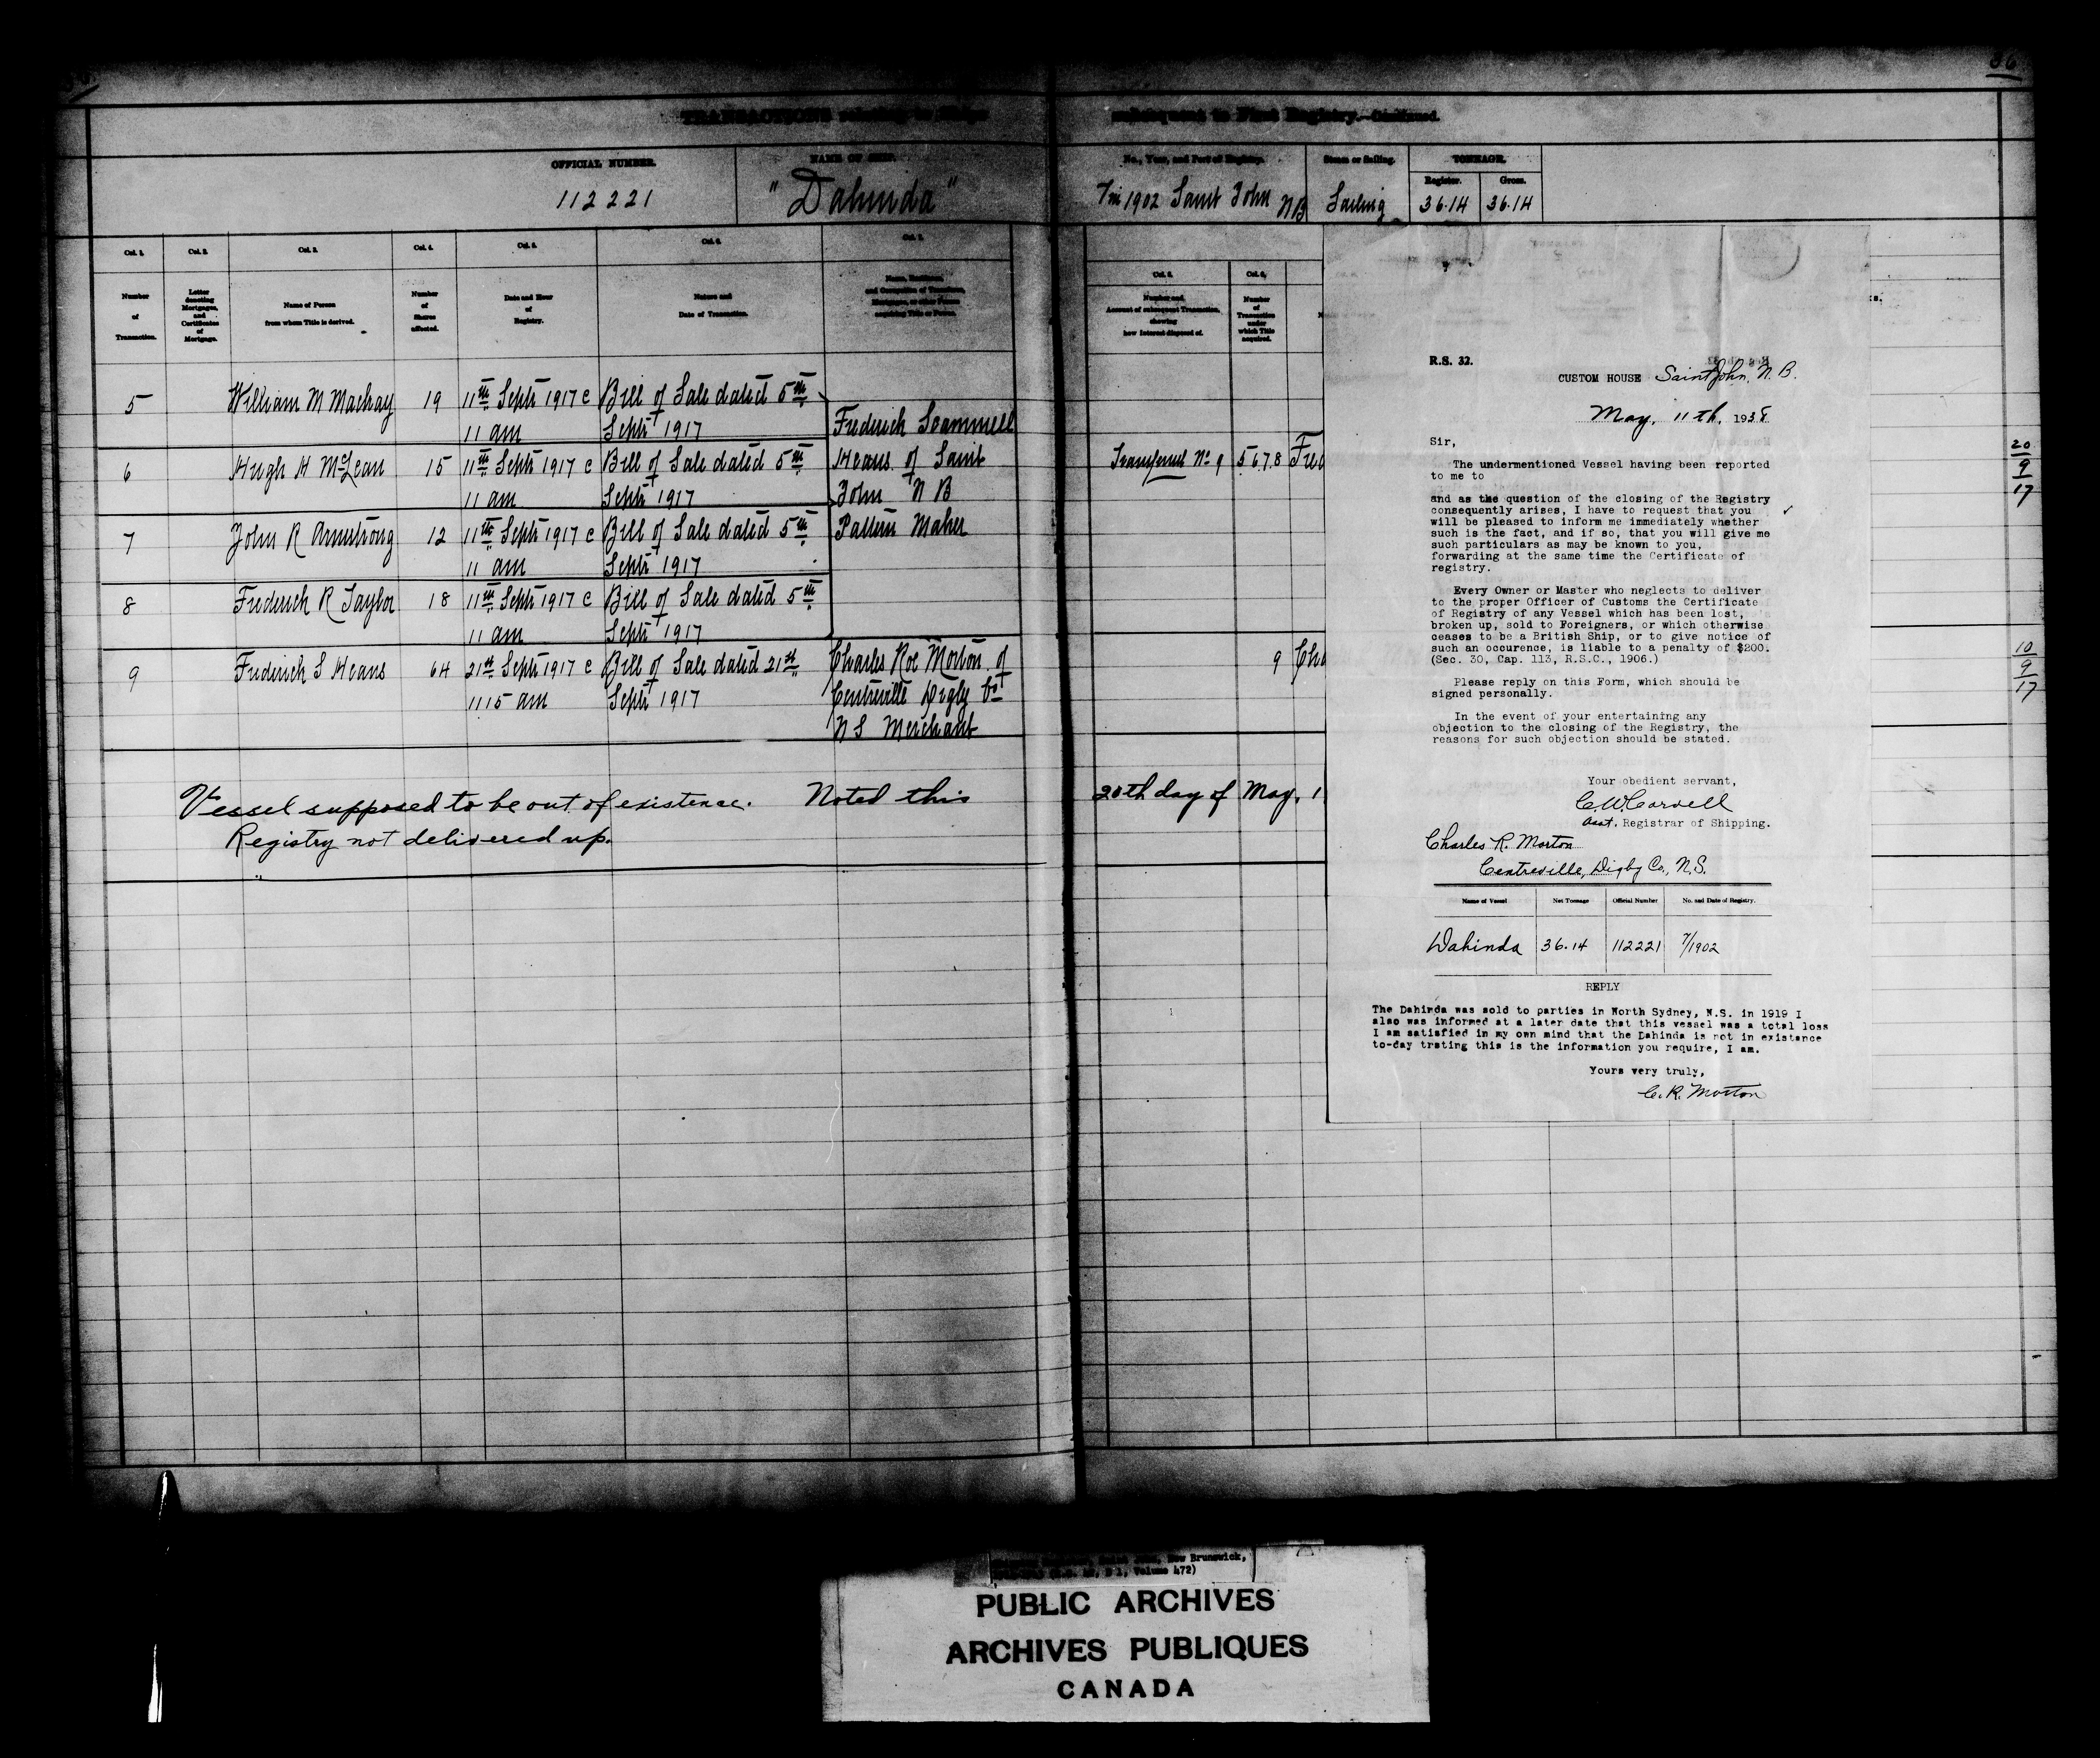 36
TRANSACTIONS relating to Ships subsequent to First Registry.—Continued.
OFFICIAL NUMBER.
112221
NAME OF SHIP.
"Dahinda"
No., Year, and Port of Registry.
7/in 1902 Saint John NB
Steam or Sailing.
Sailing
TONNAGE.
Register.
Gross.
36.14
36.14
Col. 1.
Col. 2.
Col. 3.
Col. 4.
Col. 5.
Col. 6.
Col. 7.
Number of Transaction.
Letter denoting Mortgages, and Certificates of Mortgage.
Name of Person from whom Title is derived.
Number of Shares affected.
Date and Hour of Registry.
Nature and Date of Transaction.
Name, Residence, and Occupation of Transferee, Mortgagee, or other Person acquiring Title or Power.
Col. 8.
Col. 9.
Number and Account of subsequent Transaction, showing how Interest disposed of.
Number of Transaction under which Title acquired.
5 William M Mackay 19 11th Septr 1917 c Bill of Sale dated 5th
11 am Septr 1917
6 Hugh H McLean 15 11th Septr 1917 c Bill of Sale dated 5th
11 am Septr 1917
7 John R Armstrong 12 11th Septr 1917 c Bill of Sale dated 5th
11 am Septr 1917
8 Frederick R Taylor 18 11th Septr 1917 c Bill of Sale dated 5th
11 am Septr 1917
Frederick Scammell
Heans of Saint
John N B
Pattern Maker
9 Frederick S Heans 64 21st Septr 1917 c Bill of Sale dated 21st
11 15 am Septr 1917
Charles Roe Morton of
Centreville Digby Co
N S Merchant
Transferred No 9 5 6 7 8 Fred
9 Cha
20
9
17
10
9
17
Vessel supposed to be out of existence. Noted this 20th day of May, 1
Registry not delivered up.
R.S. 32.
CUSTOM HOUSE Saint John, N.B.
May, 11th, 1938
Sir,
The undermentioned Vessel having been reported
to me to
and as the question of the closing of the Registry
consequently arises, I have to request that you
will be pleased to inform me immediately whether
such is the fact, and if so, that you will give me
such particulars as may be known to you,
forwarding at the same time the Certificate of
registry.
Every Owner or Master who neglects to deliver
to the proper Officer of Customs the Certificate
of Registry of any Vessel which has been lost,
broken up, sold to Foreigners, or which otherwise
ceases to be a British Ship, or to give notice of
such an occurence, is liable to a penalty of $200.
(Sec. 30, Cap. 113, R.S.C., 1906.)
Please reply on this Form, which should be
signed personally.
In the event of your entertaining any
objection to the closing of the Registry, the
reasons for such objection should be stated.
Your obedient servant,
C.W. Carvell
Asst. Registrar of Shipping.
Charles R. Morton
Centreville, Digby Co., N.S.
Name of Vessel
Net Tonnage
Official Number
No. and Date of Registry.
Dahinda 36.14 112221 7/1902
REPLY
The Dahinda was sold to parties in North Sydney, N.S. in 1919 I
also was informed at a later date that this vessel was a total loss
I am satisfied in my own mind that the Dahinda is not in existance
to-day trsting this is the information you require, I am.
Yours very truly,
C. R. Morton
New Brunswick,
Volume 472)
PUBLIC ARCHIVES
ARCHIVES PUBLIQUES
CANADA